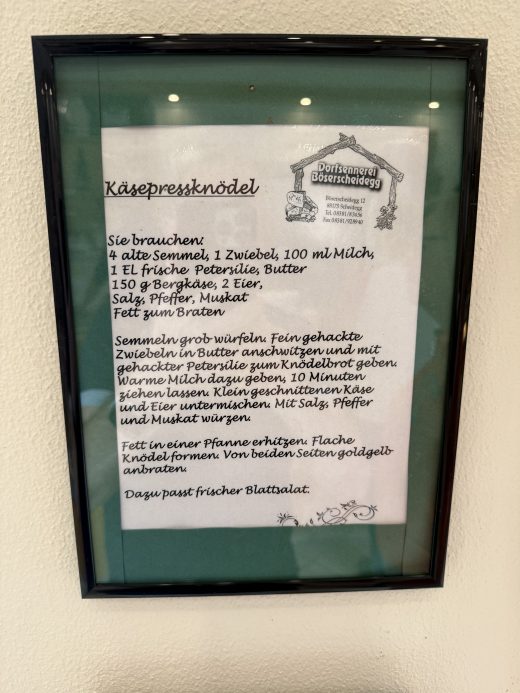 Dorfsennerei
Böserscheidegg
Böserscheidegg 12
88175 Scheidegg
Tel. 08381/83656
Fax 08381/928940
Käsepressknödel
Sie brauchen:
4 alte Semmel, 1 Zwiebel, 100 ml Milch,
1 EL frische Petersilie, Butter
150 g Bergkäse, 2 Eier,
Salz, Pfeffer, Muskat
Fett zum Braten
Semmeln grob würfeln. Fein gehackte
Zwiebeln in Butter anschwitzen und mit
gehackter Petersilie zum Knödelbrot geben.
Warme Milch dazu geben, 10 Minuten
ziehen lassen. Klein geschnittenen Käse
und Eier untermischen. Mit Salz, Pfeffer
und Muskat würzen.
Fett in einer Pfanne erhitzen. Flache
Knödel formen. Von beiden Seiten goldgelb
anbraten.
Dazu passt frischer Blattsalat.